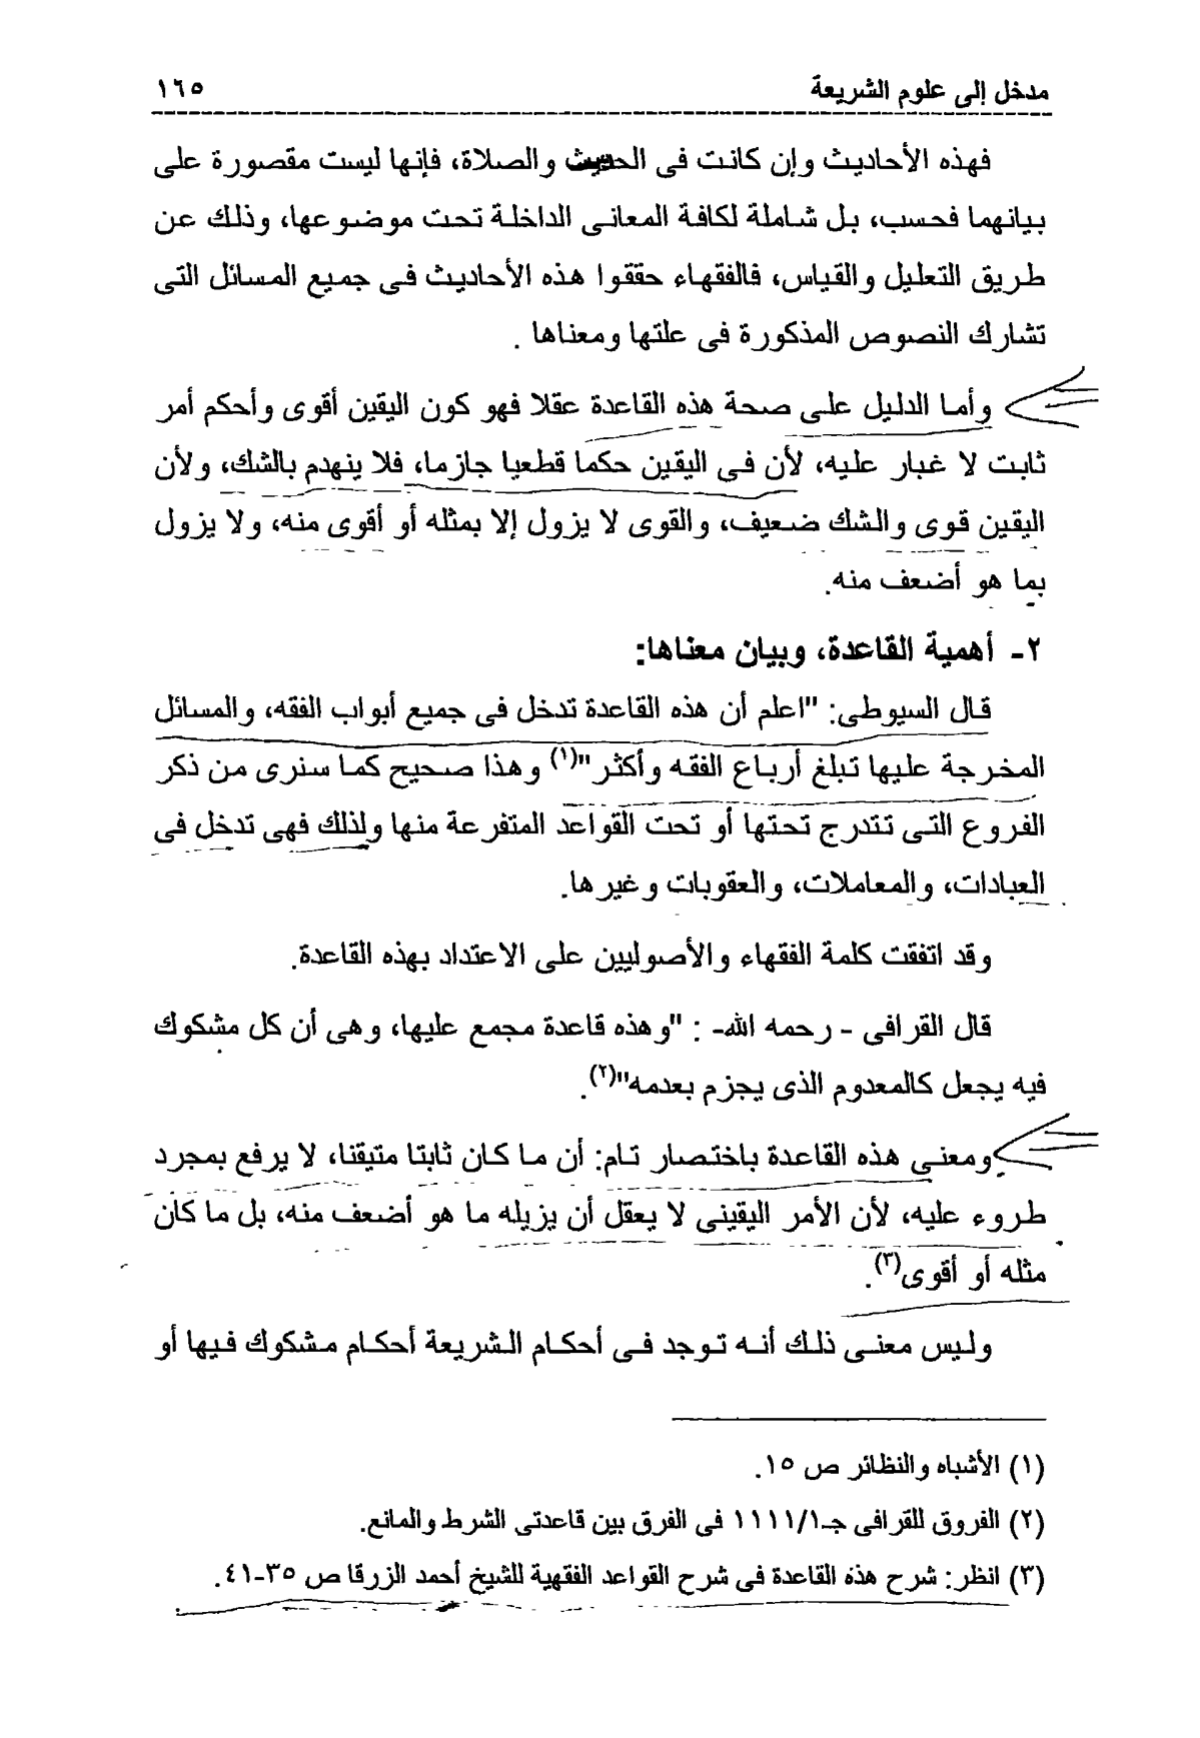 مدخل إلى علوم الشريعة ١٦٥
فهذه الأحاديث وإن كانت فى والصلاة، فإنها ليست مقصورة على
بيانهما فحسب، بل شاملة لكافة المعانى الداخلة تحت موضوعها، وذلك عن
طريق التعليل والقياس، فالفقهاء حققوا هذه الأحاديث فى جميع المسائل التى
تشارك النصوص المذكورة فى علتها ومعناها .
وأما الدليل على صحة هذه القاعدة عقلا فهو كون اليقين أقوى وأحكم أمر
ثابت لا غبار عليه، لأن فى اليقين حكما قطعيا جازما، فلا ينهدم بالشك، ولأن
اليقين قوى والشك ضعيف، والقوى لا يزول إلا بمثله أو أقوى منه، ولا يزول
بما هو أضعف منه.
٢- أهمية القاعدة، وبيان معناها:
قال السيوطى: "اعلم أن هذه القاعدة تدخل فى جميع أبواب الفقه، والمسائل
المخرجة عليها تبلغ أرباع الفقه وأكثر"(١) وهذا صحيح كما سنرى من ذكر
الفروع التى تتدرج تحتها أو تحت القواعد المتفرعة منها ولذلك فهى تدخل فى
العبادات، والمعاملات، والعقوبات وغيرها.
وقد اتفقت كلمة الفقهاء والأصوليين على الاعتداد بهذه القاعدة.
قال القرافى - رحمه الله- : "وهذه قاعدة مجمع عليها، وهى أن كل مشكوك
فيه يجعل كالمعدوم الذى يجزم بعدمه"(٢).
ومعنى هذه القاعدة باختصار تام: أن ما كان ثابتا متيقنا، لا يرفع بمجرد
طروء عليه، لأن الأمر اليقينى لا يعقل أن يزيله ما هو أضعف منه، بل ما كان
مثله أو أقوى(٣).
وليس معنى ذلك أنه توجد فى أحكام الشريعة أحكام مشكوك فيها أو
(١) الأشباه والنظائر ص ١٥.
(٢) الفروق للقرافى جـ١١١١/١ فى الفرق بين قاعدتى الشرط والمانع.
(٣) انظر: شرح هذه القاعدة فى شرح القواعد الفقهية للشيخ أحمد الزرقا ص ٣٥-٤١.